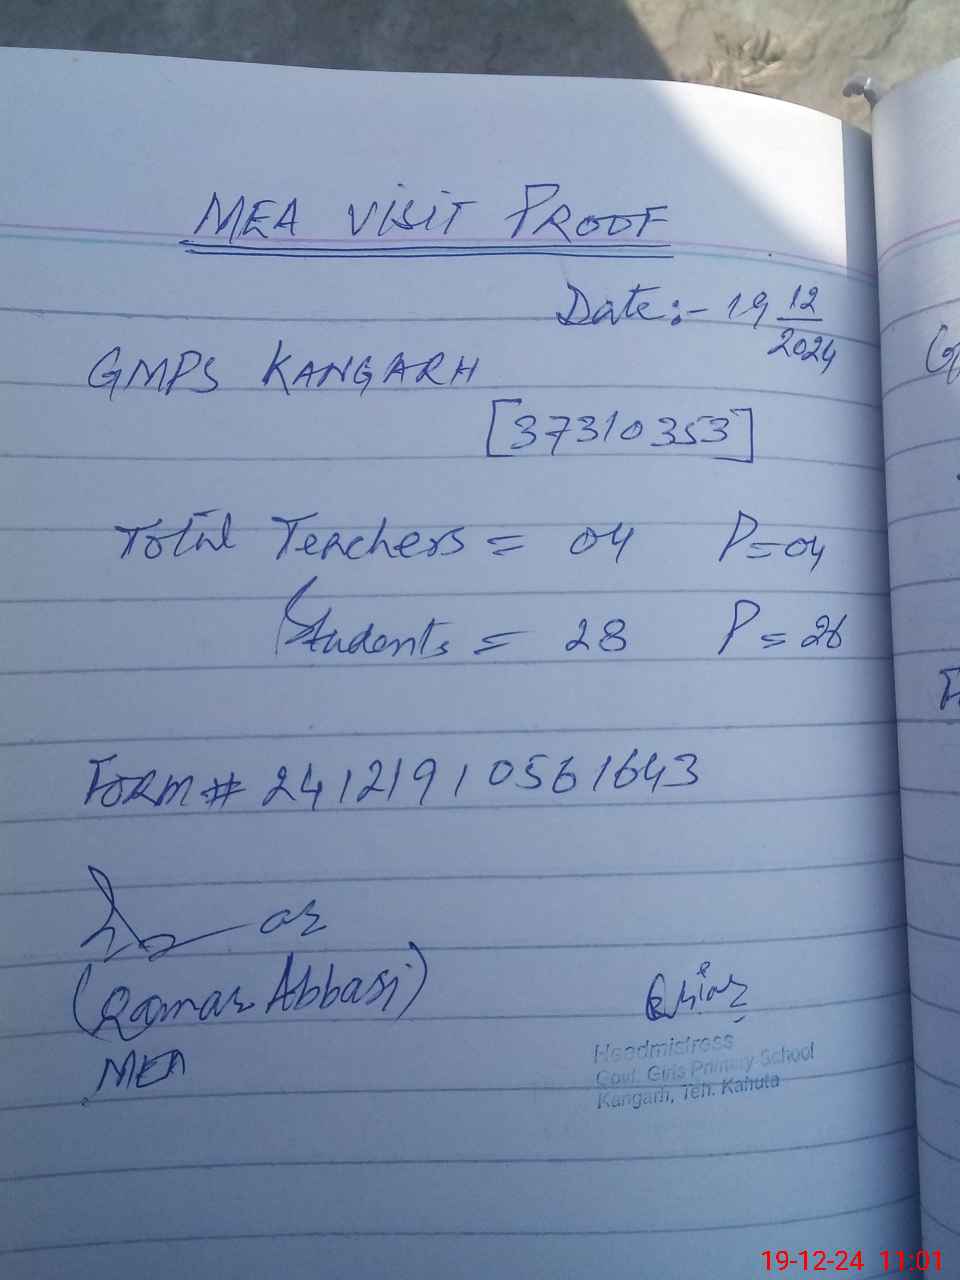 MEA VISIT PROOF
Date:- 19 12/2024
GMPS KANGARH
[37310353]
Total Teachers = 04 P=04
Students = 28 P=26
Form# 24121910561643
(Qamar Abbasi)
MEA
Headmistress
Govt. Girls Primary School
Kangarh, Teh. Kahuta
19-12-24 11:01